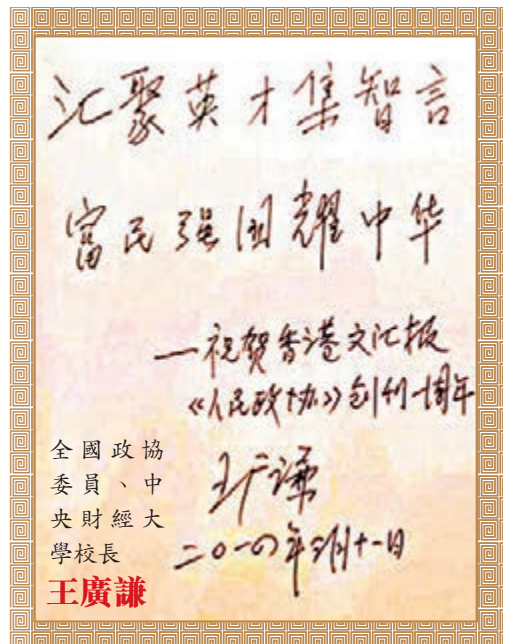 汇聚英才集智言
富民强国耀中华
—祝贺香港文汇报
《人民政协》创刊一周年
王广谦
二〇一四年三月十一日
全國政協
委員、中
央財經大
學校長
王廣謙